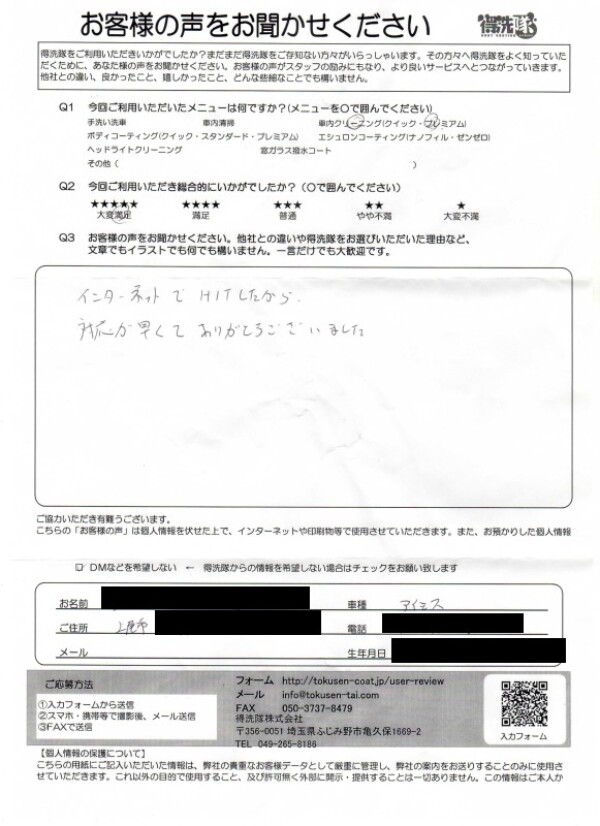 お客様の声をお聞かせください
得洗隊
得洗隊をご利用いただきいかがでしたか？まだまだ得洗隊をご存知ない方々がいらっしゃいます。その方々へ得洗隊をよく知っていた
だくために、あなた様の声をお聞かせください。お客様の声がスタッフの励みにもなり、より良いサービスへとつながっていきます。
他社との違い、良かったこと、嬉しかったこと、どんな些細なことでも構いません。
Q1 今回ご利用いただいたメニューは何ですか？(メニューを○で囲んでください)
手洗い洗車 車内清掃 車内クリーニング(クイック・プレミアム)
ボディコーティング(クイック・スタンダード・プレミアム) エシュロンコーティング(ナノフィル・ゼンゼロ)
ヘッドライトクリーニング 窓ガラス撥水コート
その他（ ）
Q2 今回ご利用いただき総合的にいかがでしたか？（○で囲んでください）
★★★★★ ★★★★ ★★★ ★★ ★
大変満足 満足 普通 やや不満 大変不満
Q3 お客様の声をお聞かせください。他社との違いや得洗隊をお選びいただいた理由など、
文章でもイラストでも何でも構いません。一言だけでも大歓迎です。
インターネットで HITしたから
対応が早くて ありがとうございました
ご協力いただき有難うございます。
こちらの「お客様の声」は個人情報を伏せた上で、インターネットや印刷物等で使用させていただきます。また、お預かりした個人情報
□ DMなどを希望しない ← 得洗隊からの情報を希望しない場合はチェックをお願い致します
お名前 車種 アイミス
ご住所 上尾市 電話
メール 生年月日
ご応募方法
①入力フォームから送信
②スマホ・携帯等で撮影後、メール送信
③FAXで送信
フォーム http://tokusen-coat.jp/user-review
メール info@tokusen-tai.com
FAX 050-3737-8479
得洗隊株式会社
〒356-0051 埼玉県ふじみ野市亀久保1669-2
TEL 049-265-8186
入力フォーム
【個人情報の保護について】
こちらの用紙にご記入いただいた情報は、弊社の貴重なお客様データとして厳重に管理し、弊社の案内をお送りすることのみに使用
させていただきます。これ以外の目的で使用すること、及び許可無く外部に開示・提供することは一切ありません。この情報はご本人か